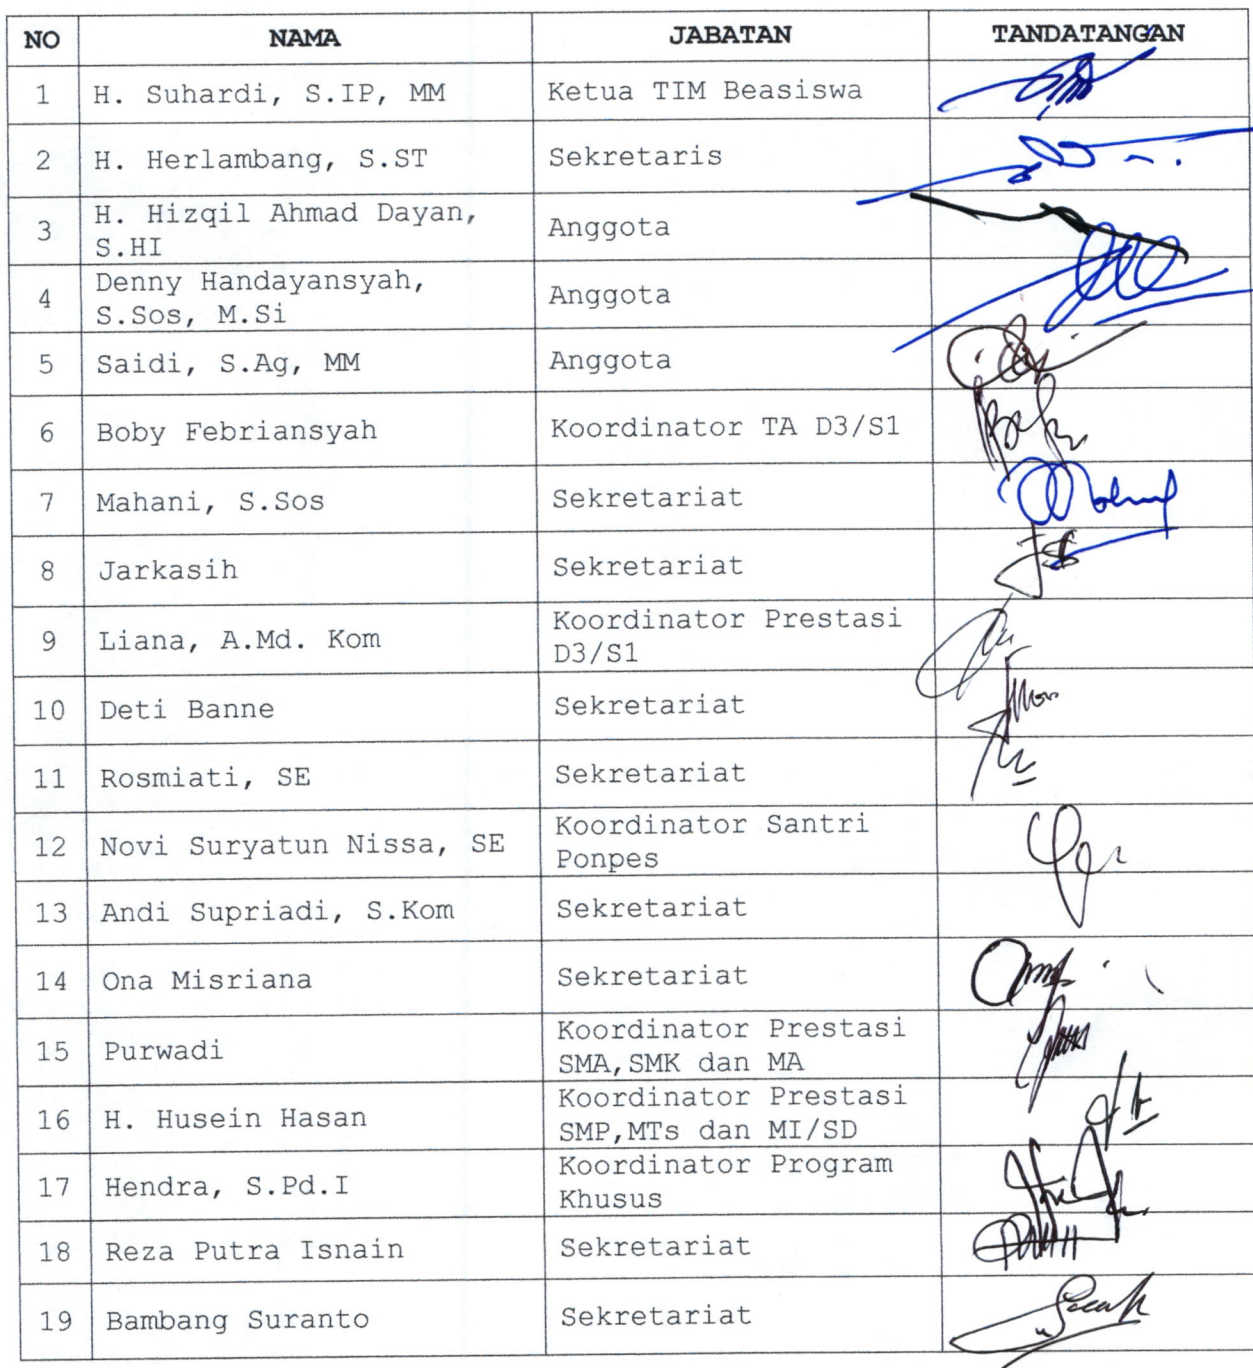 NO NAMA JABATAN TANDATANGAN
1 H. Suhardi, S.IP, MM Ketua TIM Beasiswa
2 H. Herlambang, S.ST Sekretaris
3 H. Hizqil Ahmad Dayan, S.HI Anggota
4 Denny Handayansyah, S.Sos, M.Si Anggota
5 Saidi, S.Ag, MM Anggota
6 Boby Febriansyah Koordinator TA D3/S1
7 Mahani, S.Sos Sekretariat
8 Jarkasih Sekretariat
9 Liana, A.Md. Kom Koordinator Prestasi D3/S1
10 Deti Banne Sekretariat
11 Rosmiati, SE Sekretariat
12 Novi Suryatun Nissa, SE Koordinator Santri Ponpes
13 Andi Supriadi, S.Kom Sekretariat
14 Ona Misriana Sekretariat
15 Purwadi Koordinator Prestasi SMA,SMK dan MA
16 H. Husein Hasan Koordinator Prestasi SMP,MTs dan MI/SD
17 Hendra, S.Pd.I Koordinator Program Khusus
18 Reza Putra Isnain Sekretariat
19 Bambang Suranto Sekretariat